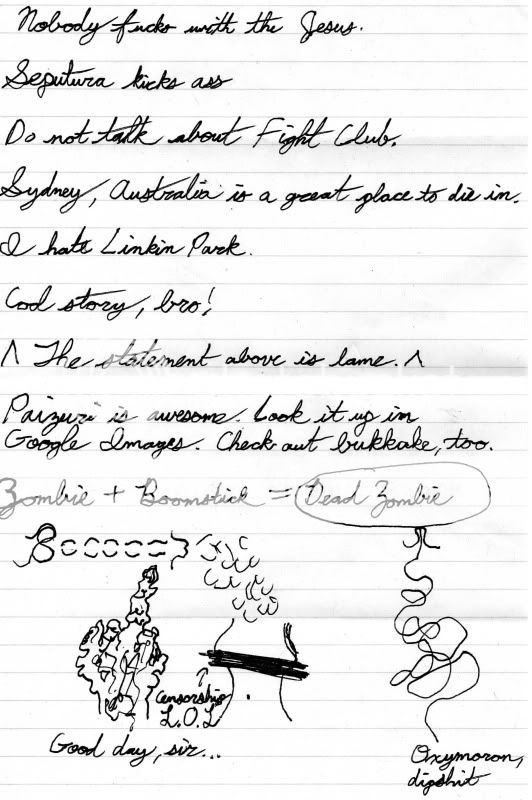 Nobody fucks with the Jesus.
Seputura kicks ass
Do not talk about Fight Club.
Sydney, Australia is a great place to die in.
I hate Linkin Park.
Cool story, bro!
^ The statement above is lame. ^
Paizuri is awesome. Look it up in
Google Images. Check out bukkake, too.
Zombie + Boomstick = Dead Zombie
censorship
L.O.L
Good day, sir...
Oxymoron,
dipshit